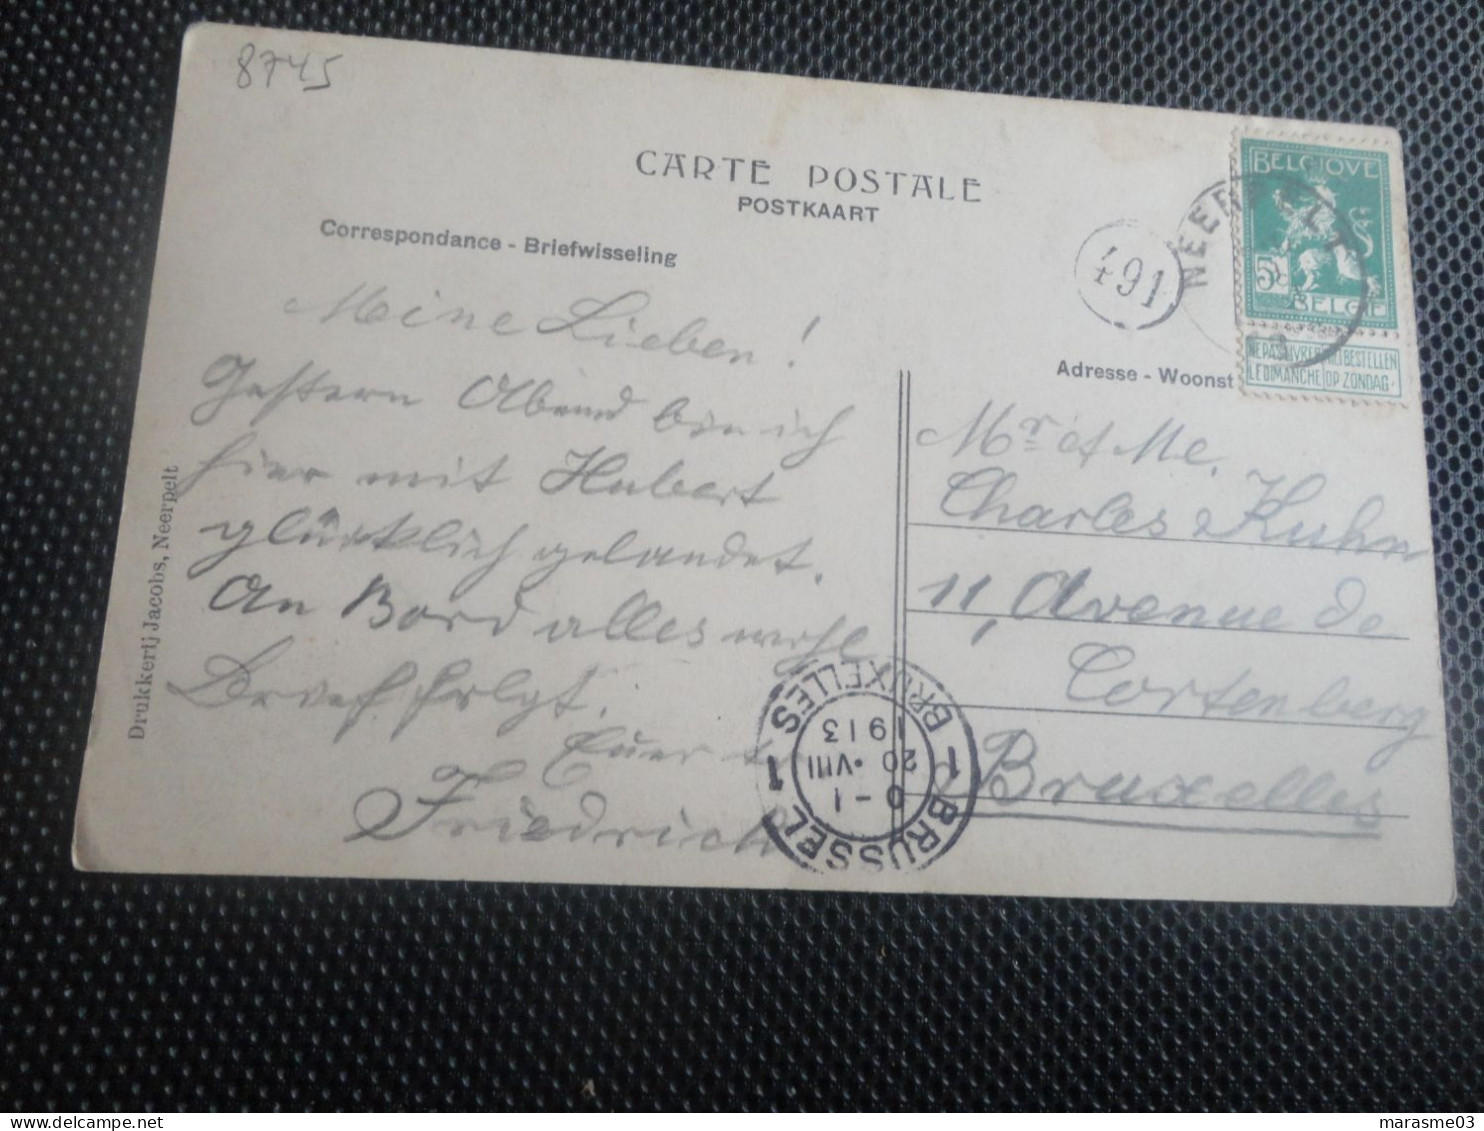 8745
CARTE POSTALE
POSTKAART
Correspondance - Briefwisseling
491
NEERPELT
BELGIQUE
5
BELGIË
NE PAS LIVRER NIET BESTELLEN
LE DIMANCHE OP ZONDAG
Adresse - Woonst
Meine Lieben!
Gestern Abend bin ich
hier mit Hubert
glücklich gelandet.
An Bord alles wohl
Brief folgt.
Euer
Friedrich
Mr et Me.
Charles Kuhn
11, Avenue de
Cortenberg
Bruxelles
BRUXELLES 1
BRUSSEL 1
0-1
20.VIII
1913
Drukkerij Jacobs, Neerpelt
marasme03